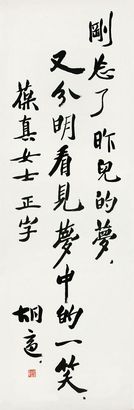 剛忘了昨兒的夢，
又分明看見夢中的一笑。
葆真女士正字
胡適。